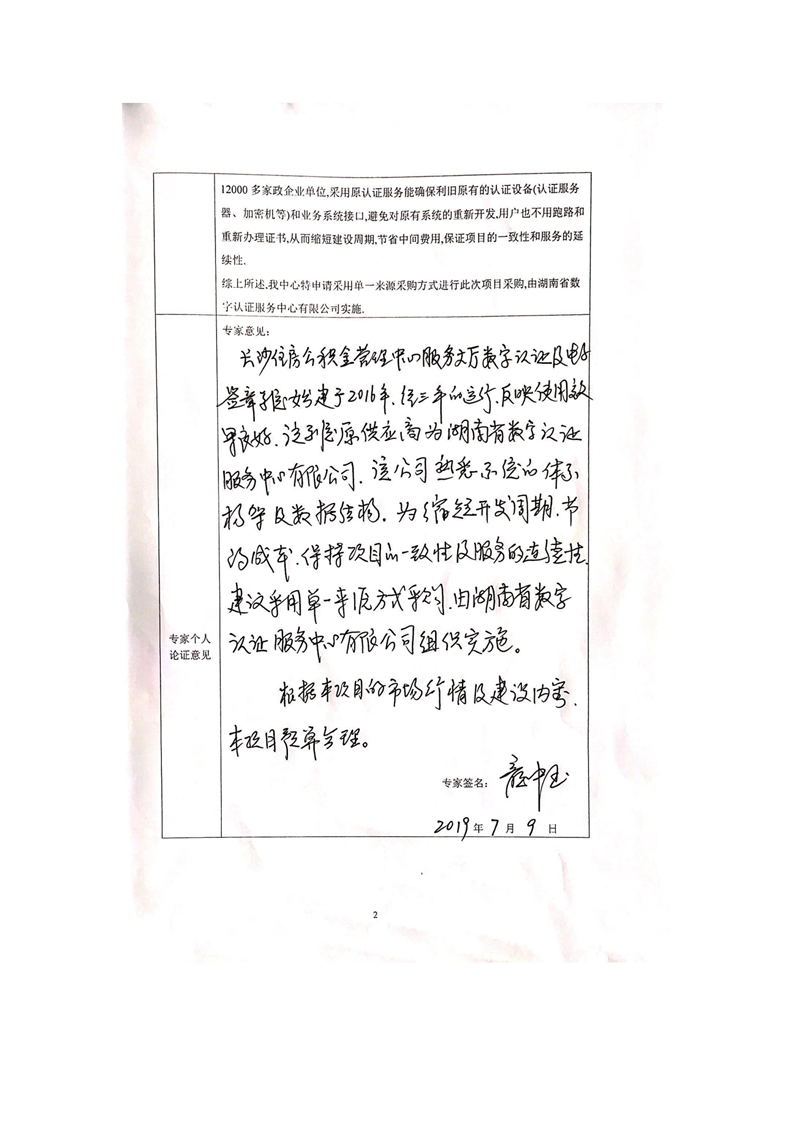 12000 多家政企业单位,采用原认证服务能确保利旧原有的认证设备(认证服务
器、加密机等)和业务系统接口,避免对原有系统的重新开发,用户也不用跑路和
重新办理证书,从而缩短建设周期,节省中间费用,保证项目的一致性和服务的延
续性.
综上所述,我中心特申请采用单一来源采购方式进行此次项目采购,由湖南省数
字认证服务中心有限公司实施.
专家个人
论证意见
专家意见:
长沙住房公积金管理中心服务大厅数字认证及电子
签章系统始建于2016年.经三年的运行.反映使用效
果良好.该系统原供应商为湖南省数字认证
服务中心有限公司.该公司熟悉系统的体系
构架及数据结构.为缩短开发周期.节
约成本.保持项目的一致性及服务的连续性.
建议采用单一来源方式采购.由湖南省数字
认证服务中心有限公司组织实施。
根据本项目的市场行情及建设内容.
本项目预算合理。
专家签名:
2019年7月9日
2